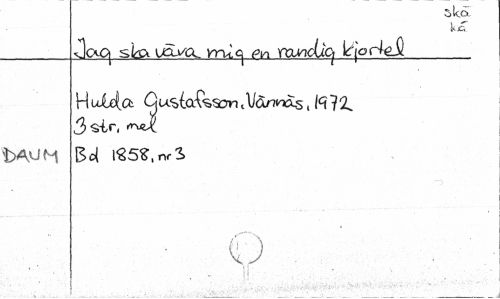 skä
kä
Jag ska väva mig en randig kjortel
Hulda Gustafsson, Vännäs, 1972
3 str, mel
DAUM Bd 1858, nr 3